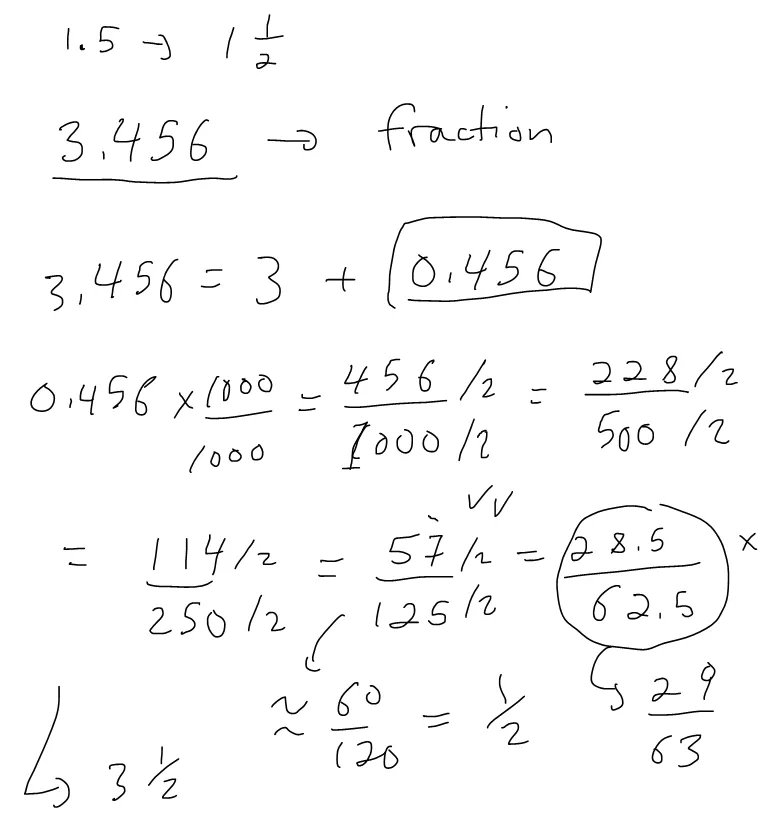 1.5 → 1 1/2
3.456 → fraction
3.456 = 3 + 0.456
0.456 × 1000/1000 = 456/2 / 1000/2 = 228/2 / 500/2
= 114/2 / 250/2 = 57/2 / 125/2 = 28.5/62.5 ×
≈ 60/120 = 1/2 → 29/63
→ 3 1/2